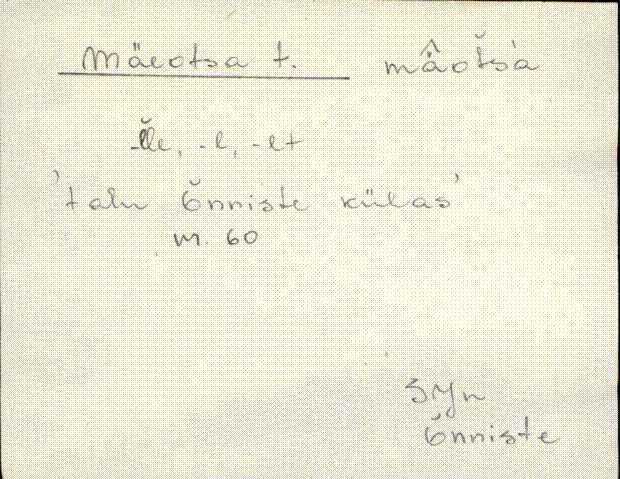 Mäeotsa t. mä̂otš́a
-l̆le, -l, -lt
'talu Õnniste külas'
m. 60
Õnniste